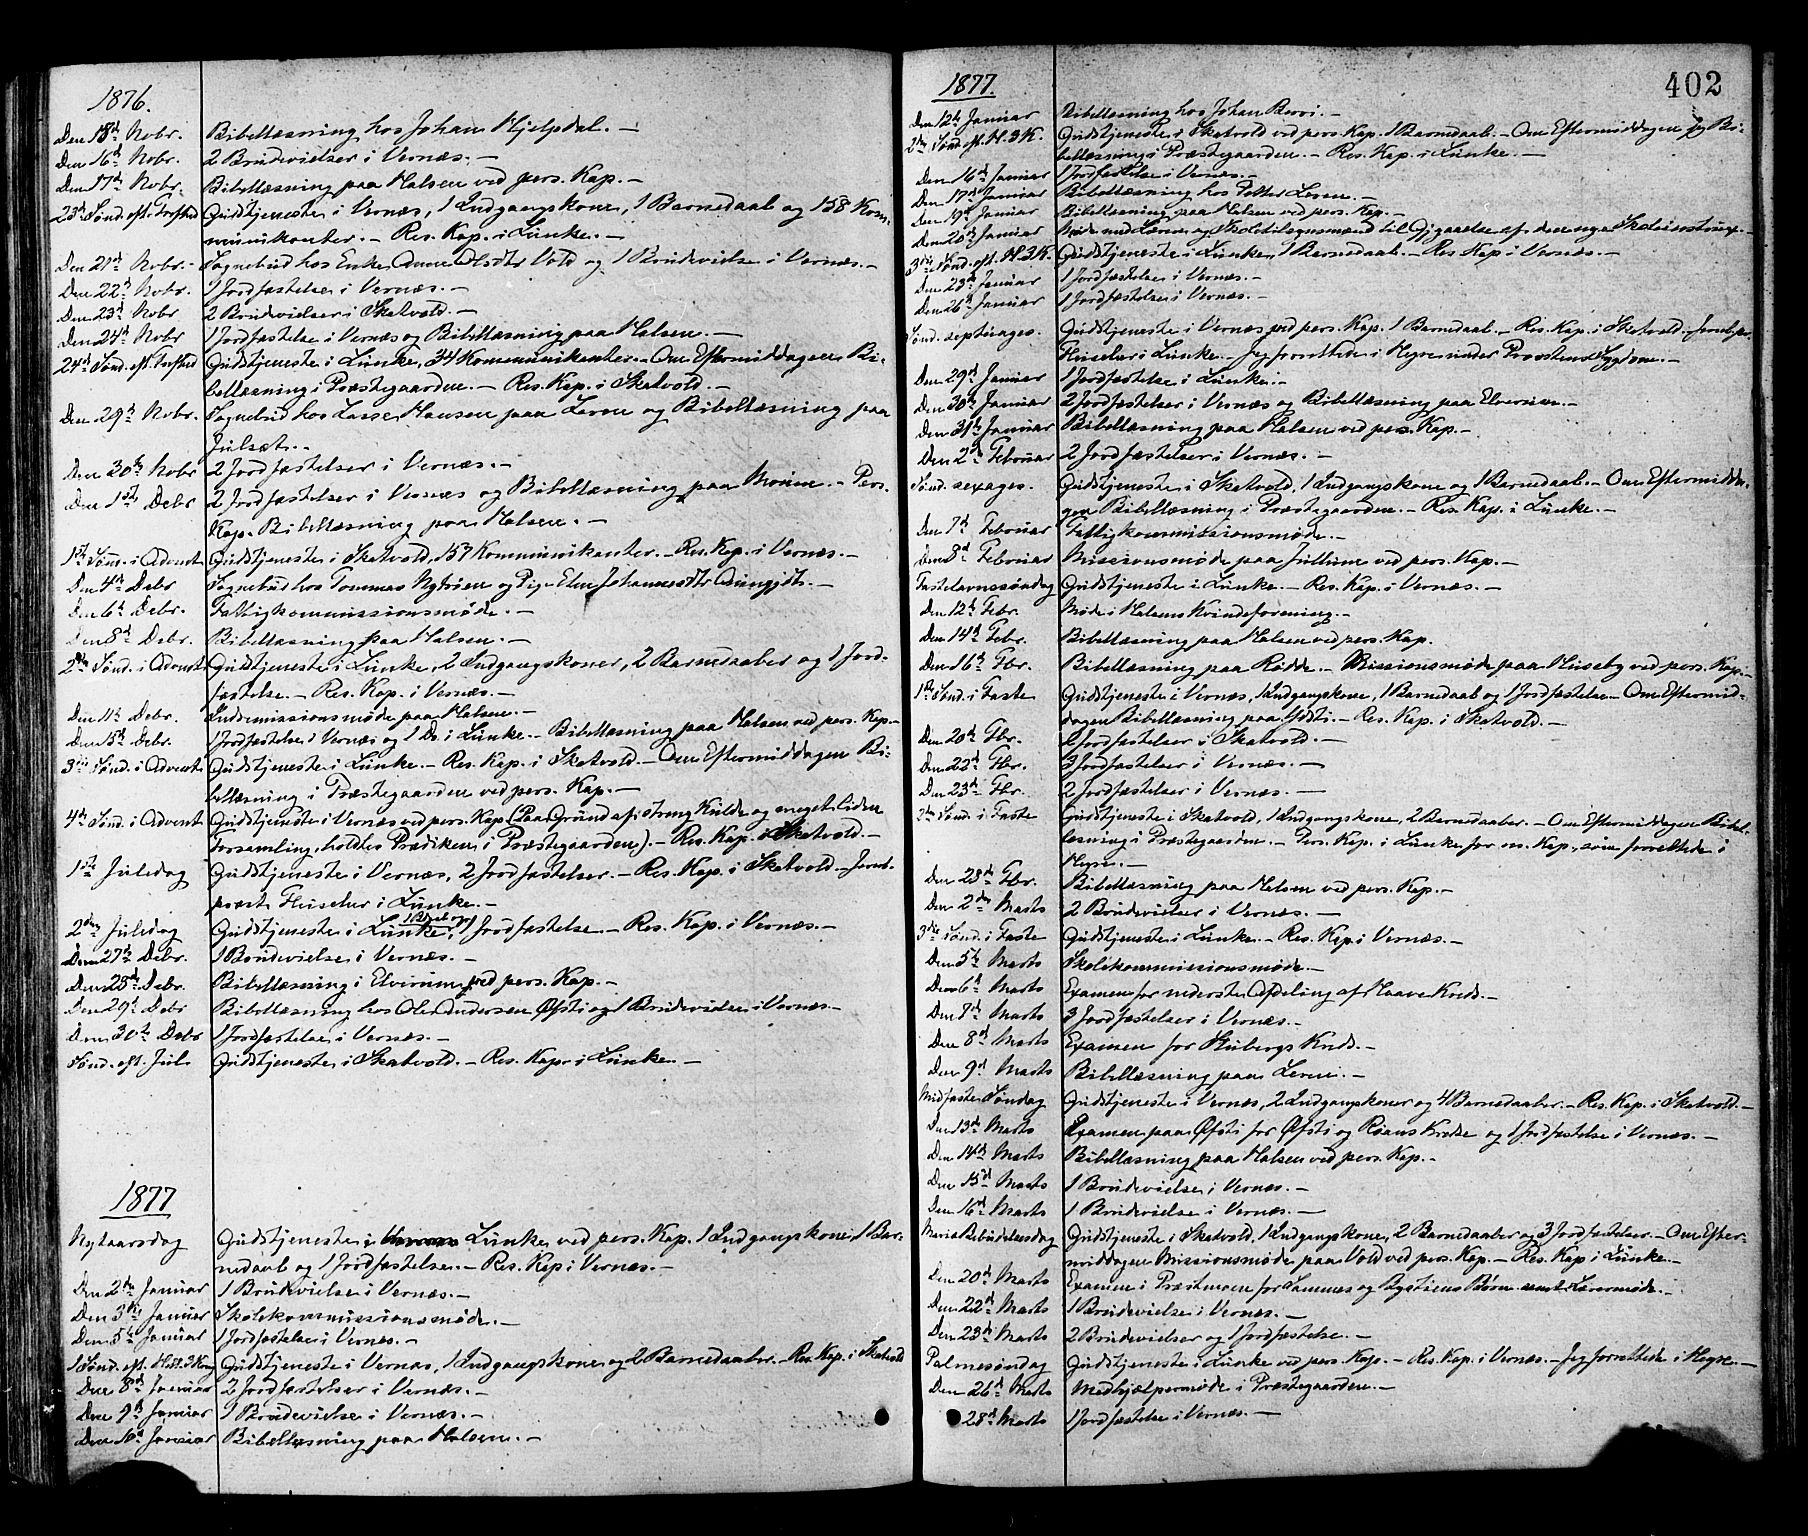 1876.
Den 13d Nobr. Bibellæsning hos Johan Hjelpdal. —
Den 16d Nobr. 2 Brudevielser i Vernæs. —
Den 17d Nobr. Bibellæsning paa Halsen ved pers. Kap. —
23d Sønd. eft. Trefhed Gudstjeneste i Vernæs, 1 Indgangskone, 1 Barnedaab og 158 Kom-
munikanter. — Res. Kap. i Lånke. —
Den 21d Nobr. — Sognebud hos Enke Anne Olsdtr Vold og 1 Brudevielse i Vernæs. —
Den 22d Nobr. 1 Jordfæstelse i Vernæs. —
Den 23d Nobr 2 Brudevielser i Skatvold. —
Den 24d Nobr 1 Jordfæstelse i Vernæs og Bibellæsning paa Halsen. —
24d Sønd. eft. Trefhed Gudstjeneste i Lånke, 34 Kommunikanter. — Om Eftermiddagen Bi-
bellæsning i Præstegaarden. — Res. Kap. i Skatvold. —
Den 29d Nobr. Sognebud hos Lasse Hansen paa Leren og Bibellæsning paa
Julsæt. —
Den 30te Nobr 2 Jordfæstelser i Vernæs. —
Den 1st Debr 2 Jordfæstelser i Vernæs og Bibellæsning paa Moum. — Pers.
Kap. Bibellæsning paa Halsen. —
1st Sønd. i Advent Gudstjeneste i Skatvold, 157 Kommunikanter. — Res. Kap. i Vernæs. —
Den 4d Debr Sognebud hos Tommas Nyhøien og Pige Elen Johannesdtr —
Den 6t Debr. Fattigkommissionsmøde. —
Den 8d Debr. Bibellæsning paa Halsen. —
2den Sønd. i Advent Gudstjeneste i Lånke, 2 Indgangskoner, 2 Barnedaaber og 1 Jord-
fæstelse. — Res. Kap. i Vernæs. —
Den 11te Debr. Indremissionsmøde paa Halsen. —
Den 15d Debr. 1 Jordfæstelse i Vernæs og 1 Do i Lånke. — Bibellæsning paa Halsen ved pers. Kap. —
3die Sønd. i Advent Gudstjeneste i Lånke. — Res. Kap. i Skatvold. — Om Eftermiddagen Bi-
bellæsning i Præstegaarden ved pers. Kap. —
4de Sønd. i Advent Gudstjeneste i Vernæs ved pers. Kap. (Paa Grund af streng Kulde og meget liden
Forsamling, holdtes Prædiken i Præstegaarden). — Res. Kap. i Skatvold. —
1st Juledag Gudstjeneste i Vernæs, 2 Jordfæstelser. — Res. Kap. i Skatvold. —
præst Huseler i Lånke. —
2den Juledag Gudstjeneste i Lånke, 1 Jordfæstelse — Res. Kap. i Vernæs. —
Den 27de Debr. 1 Brudevielse i Vernæs. —
Den 28d Debr. Bibellæsning i Elverum ved pers. Kap. —
Den 29d Debr Bibellæsning hos Ole Andersen Øfsti og 1 Brudevielse i Vernæs. —
Den 30te Debr 1 Jordfæstelse i Vernæs. —
Sønd. eft. Jul Gudstjeneste i Skatvold. — Res. Kap. i Lånke. —
1877
Nytaarsdag Gudstjeneste i Lånke ved pers. Kap. 1 Indgangskone, 1 Bar-
nedaab og 1 Jordfæstelse. — Res. Kap. i Vernæs. —
Den 2den Januar 1 Brudevielse i Vernæs. —
Den 3die Januar Skolekommissionsmøde. —
Den 5te Januar 1 Jordfæstelse i Vernæs. —
1 Sønd. eft. Hell. 3 Kong Gudstjeneste i Vernæs, 1 Indgangskone og 2 Barnedaaber. — Res. Kap. i Skatvold
Den 8d Januar 2 Jordfæstelser i Vernæs. —
Den 9d Januar 1 Brudevielse i Vernæs. —
Den 10d Januar Bibellæsning paa Halsen. —
402
1877.
Den 12te Januar Bibellæsning hos Johan
2den Sønd. eft. H. 3 K. Gudstjeneste i Skatvold ved pers. Kap. 1 Barnedaab. — Om Eftermiddagen Bi-
bellæsning i Præstegaarden. — Res. Kap. i Lånke. —
Den 16d Januar 1 Jordfæstelse i Vernæs. —
Den 17d Januar Bibellæsning hos Petter Leren. —
Den 19d Januar Bibellæsning paa Halsen ved pers. Kap. —
Den 20d Januar Møde med Lærere og Skoletilsynsmænd til af den nye Skoleinstrux. —
3die Sønd. eft. H. 3 K. Gudstjeneste i Lånke, 1 Barnedaab. — Res. Kap. i Vernæs. —
Den 23d Januar 1 Jordfæstelse i Vernæs. —
Den 26d Januar 1 Jordfæstelse i Vernæs. —
Sønd. septuages. Gudstjeneste i Vernæs ved pers. Kap. 1 Barnedaab. — Res. Kap. i Skatvold. —
Huseler i Lånke. — Jeg forrettede i Hegre under Provstens Sygdom. —
Den 29d Januar 1 Jordfæstelse i Lånke. —
Den 30te Januar 2 Jordfæstelser i Vernæs og Bibellæsning paa Elverum. —
Den 31te Januar Bibellæsning paa Halsen ved pers. Kap. —
Den 2d Februar 2 Jordfæstelser i Vernæs. —
Sønd. sexages. Gudstjeneste i Skatvold, 1 Indgangskone og 1 Barnedaab. — Om Eftermidda-
gen Bibellæsning i Præstegaarden. — Res. Kap. i Lånke. —
Den 7d Februar Fattigkommissionsmøde. —
Den 8d Februar Missionsmøde paa Jullum ved pers. Kap. —
Fastelavnssøndag Gudstjeneste i Lånke. — Res. Kap. i Vernæs. —
Den 12te Febr. Møde i Halsens Kvindeforening. —
Den 14d Febr. Bibellæsning paa Halsen ved pers. Kap.
Den 16d Fbr. Bibellæsning paa Rødde. — Missionsmøde paa Huseby ved pers. Kap. —
1st Sønd. i Faste Gudstjeneste i Vernæs, 1 Indgangskone, 1 Barnedaab og 1 Jordfæstelse — Om Eftermid-
dagen Bibellæsning paa Øfsti. — Res. Kap. i Skatvold. —
Den 20de Fbr. 2 Jordfæstelser i Skatvold. —
Den 22d Fbr. 3 Jordfæstelser i Vernæs. —
Den 23d Fbr. 2 Jordfæstelser i Vernæs. —
2den Sønd. i Faste Gudstjeneste i Skatvold, 1 Indgangskone, 2 Barnedaaber. — Om Eftermiddagen Bibel-
læsning i Præstegaarden. — Pers. Kap. i Lånke for res. Kap., som forrettede i
Hegre. —
Den 28d Fbr. Bibellæsning paa Halsen ved pers. Kap. —
Den 2den Marts 2 Brudevielser i Vernæs. —
3die Sønd. i Faste Gudstjeneste i Lånke. — Res. Kap. i Vernæs. —
Den 5te Marts Skolekommissionsmøde. —
Den 6te Marts Examen for nederste Afdeling af Haave Kreds. —
Den 7d Marts 3 Jordfæstelser i Vernæs. —
Den 8d Marts Examen for Stubergs Kreds. —
Den 9d Marts Bibellæsning paa Leren. —
Midfaste Søndag Gudstjeneste i Vernæs, 2 Indgangskoner og 4 Barnedaaber. — Res. Kap. i Skatvold. —
Den 13de Marts Examen paa Øfsti for Øfsti og Roans Kredse og 1 Jordfæstelse i Vernæs. —
Den 14de Marts Bibellæsning paa Halsen ved pers. Kap. —
Den 15d Marts 1 Brudevielse i Vernæs. —
Den 16d Marts 1 Brudevielse i Vernæs. —
Maria Bebudelsesdag Gudstjeneste i Skatvold, 1 Indgangskone, 2 Barnedaaber og 3 Jordfæstelser. — Om Efter-
middagen Missionsmøde paa Vold ved pers. Kap. — Res. Kap. i Lånke. —
Den 20d Marts Examen i Præstmoen for Sannes og Børn samt Lærermøde. —
Den 22d Marts 1 Brudevielse i Vernæs. —
Den 23de Marts 2 Brudevielser og 1 Jordfæstelse. —
Palmesøndag Gudstjeneste i Lånke ved pers. Kap. — Res. Kap. i Vernæs. — Jeg forrettede i Hegre. —
Den 26d Marts Medhjælpermøde i Præstegaarden. —
28d Marts 1 Jordfæstelse i Vernæs. —